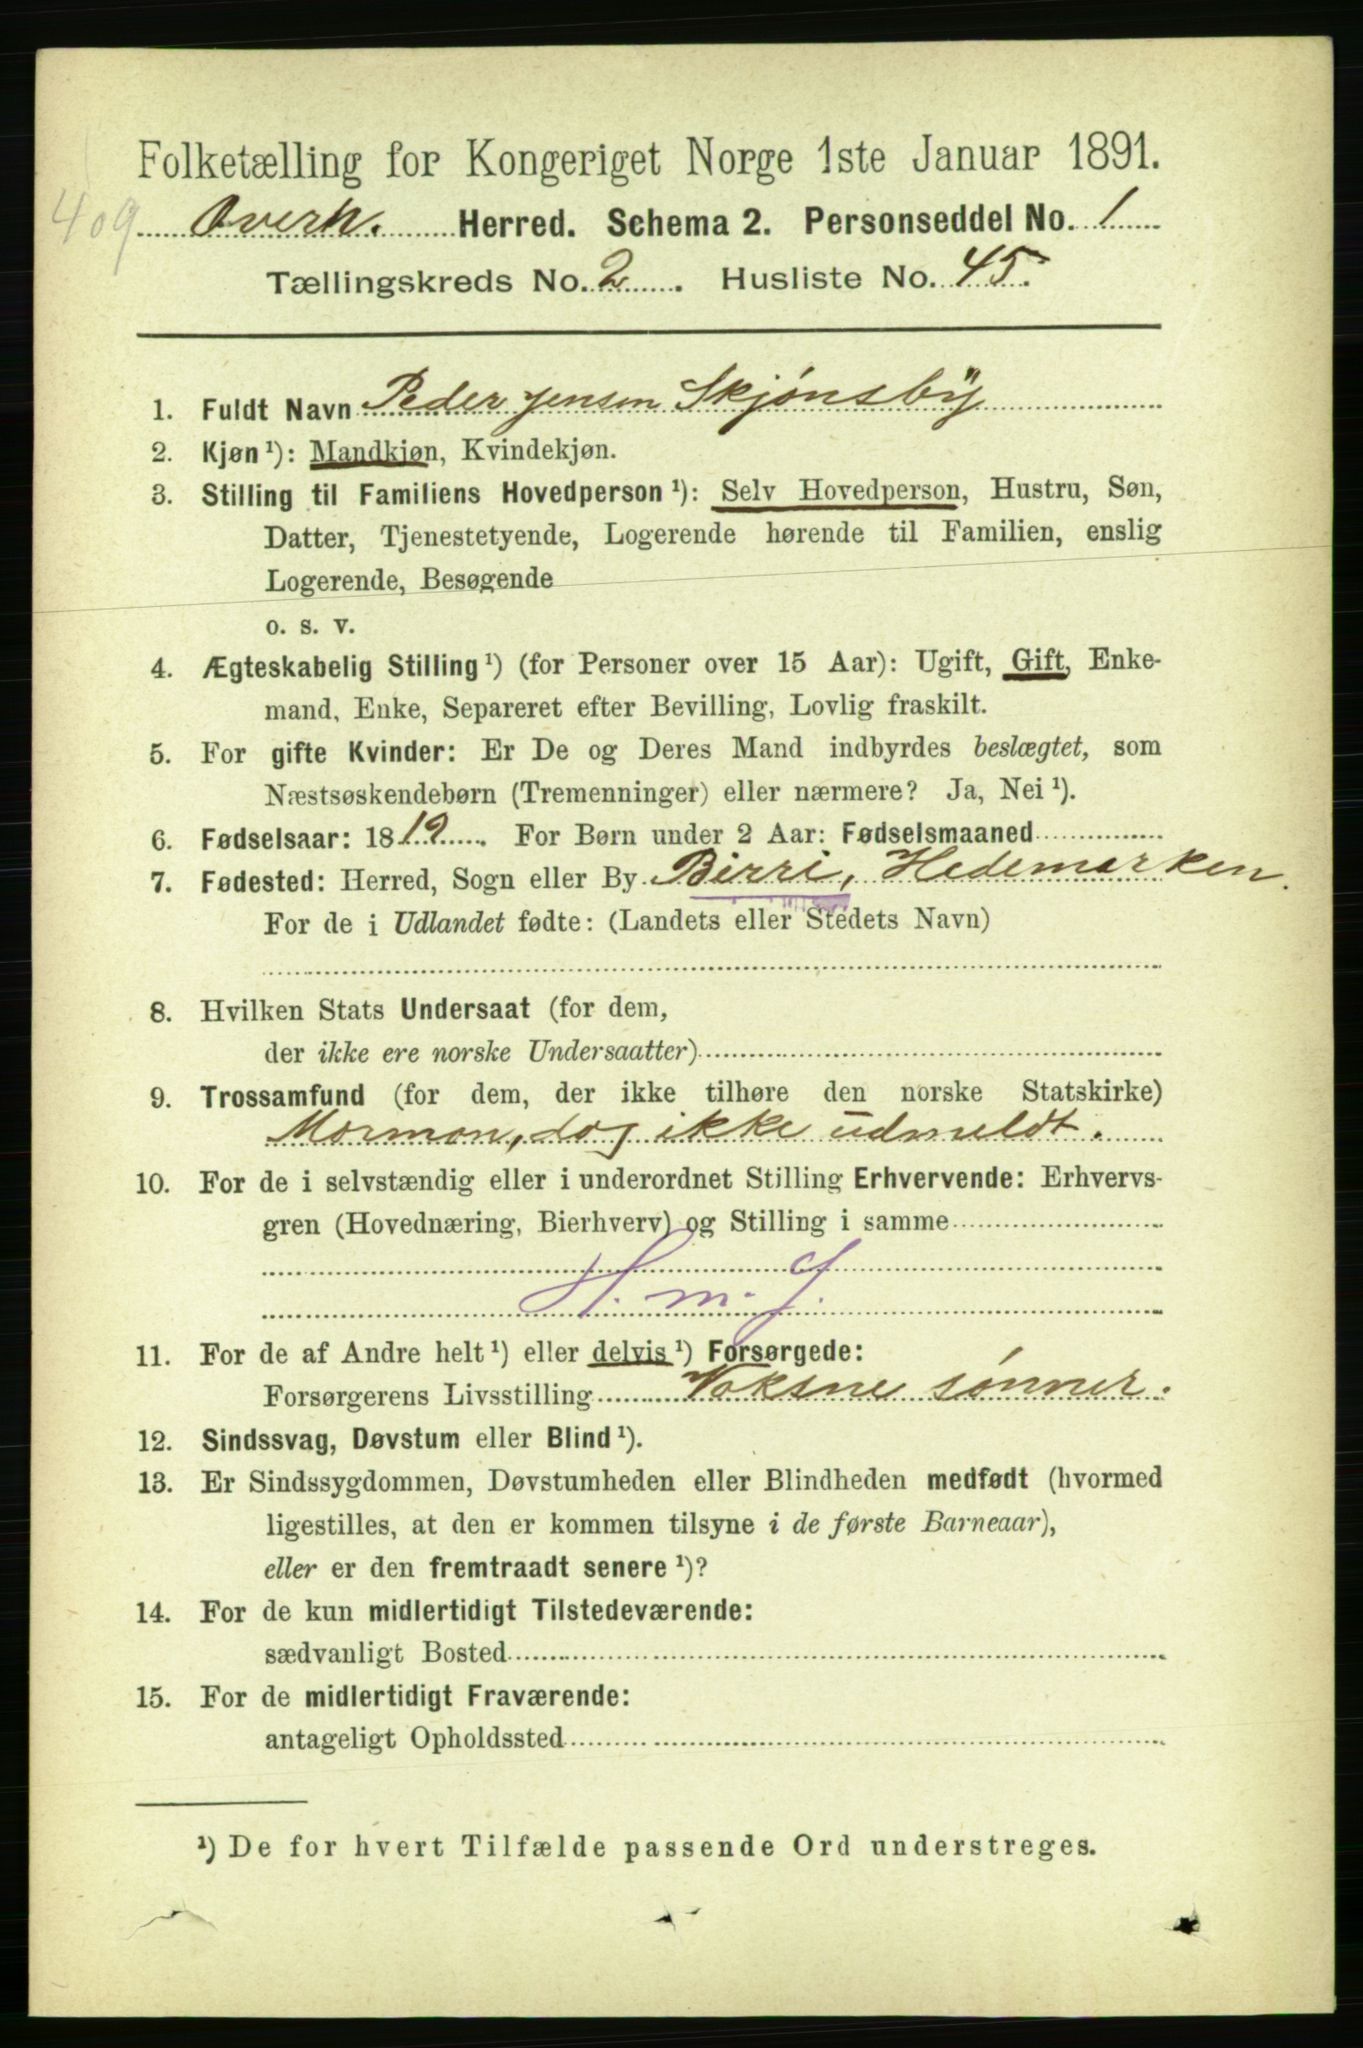 Folketælling for Kongeriget Norge 1ste Januar 1891.
409 Overh. Herred. Schema 2. Personseddel No. 1
Tællingskreds No. 2. Husliste No. 45.
1. Fuldt Navn Peder Jensen Skjønsby
2. Kjøn ¹): Mandkjøn, Kvindekjøn.
3. Stilling til Familiens Hovedperson ¹): Selv Hovedperson, Hustru, Søn,
Datter, Tjenestetyende, Logerende hørende til Familien, enslig
Logerende, Besøgende
o. s. v.
4. Ægteskabelig Stilling ¹) (for Personer over 15 Aar): Ugift, Gift, Enke-
mand, Enke, Separeret efter Bevilling, Lovlig fraskilt.
5. For gifte Kvinder: Er De og Deres Mand indbyrdes beslægtet, som
Næstsøskendebørn (Tremenninger) eller nærmere? Ja, Nei ¹).
6. Fødselsaar: 1819. For Børn under 2 Aar: Fødselsmaaned
7. Fødested: Herred, Sogn eller By Birri, Hedemarken.
For de i Udlandet fødte: (Landets eller Stedets Navn)
8. Hvilken Stats Undersaat (for dem,
der ikke ere norske Undersaatter)
9. Trossamfund (for dem, der ikke tilhøre den norske Statskirke)
Mormon, dog ikke udmeldt.
10. For de i selvstændig eller i underordnet Stilling Erhvervende: Erhvervs-
gren (Hovednæring, Bierhverv) og Stilling i samme
H. m. J.
11. For de af Andre helt ¹) eller delvis ¹) Forsørgede:
Forsørgerens Livsstilling Voksne sønner.
12. Sindssvag, Døvstum eller Blind ¹).
13. Er Sindssygdommen, Døvstumheden eller Blindheden medfødt (hvormed
ligestilles, at den er kommen tilsyne i de første Barneaar),
eller er den fremtraadt senere ¹)?
14. For de kun midlertidigt Tilstedeværende:
sædvanligt Bosted
15. For de midlertidigt Fraværende:
antageligt Opholdssted
¹) De for hvert Tilfælde passende Ord understreges.